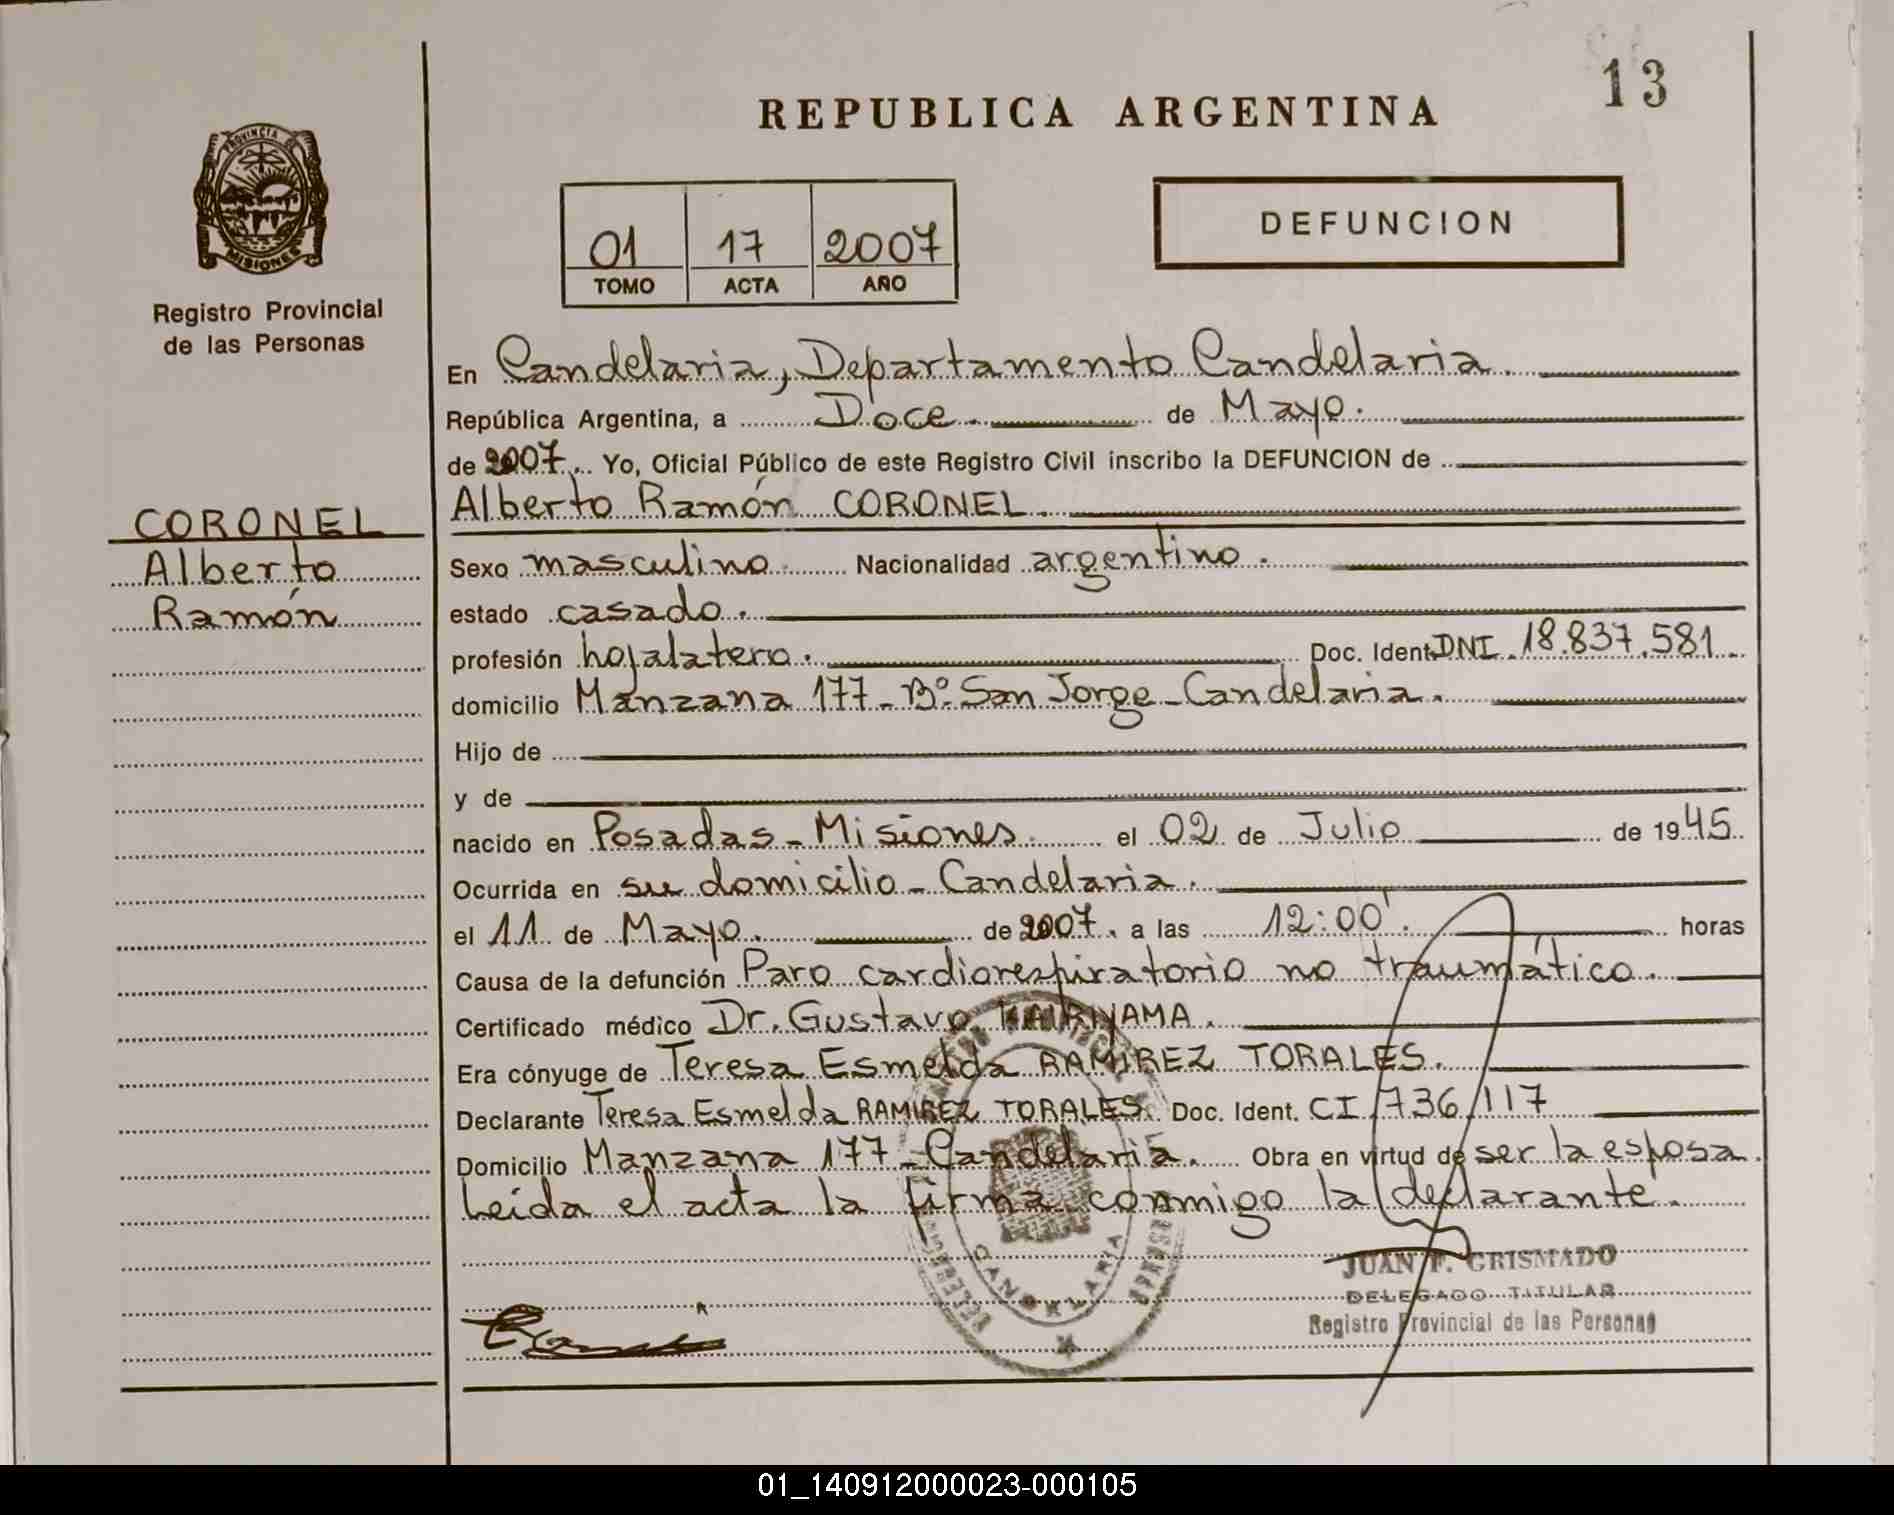 13
REPUBLICA ARGENTINA
PROVINCIA DE
MISIONES
Registro Provincial
de las Personas
01 17 2007
TOMO ACTA AÑO
DEFUNCION
En Candelaria, Departamento Candelaria.
República Argentina, a Doce de Mayo.
de 2007. Yo, Oficial Público de este Registro Civil inscribo la DEFUNCION de
Alberto Ramón CORONEL.
CORONEL
Alberto
Ramón
Sexo masculino. Nacionalidad argentino.
estado casado.
profesión hojalatero. Doc. Ident. DNI 18.837.581
domicilio Manzana 177 - Bº San Jorge - Candelaria.
Hijo de
y de
nacido en Posadas - Misiones. el 02 de Julio de 1945
Ocurrida en su domicilio - Candelaria.
el 11 de Mayo. de 2007. a las 12:00'. horas
Causa de la defunción Paro cardiorespiratorio no traumático.
Certificado médico Dr. Gustavo
Era cónyuge de Teresa Esmelda RAMIREZ TORALES.
Declarante Teresa Esmelda RAMIREZ TORALES. Doc. Ident. CI 736/117
Domicilio Manzana 177 - Candelaria. Obra en virtud de ser la esposa.
Leída el acta la firma conmigo la declarante.
CANDELARIA
JUAN F. GRISMADO
DELEGADO TITULAR
Registro Provincial de las Personas
01_140912000023-000105